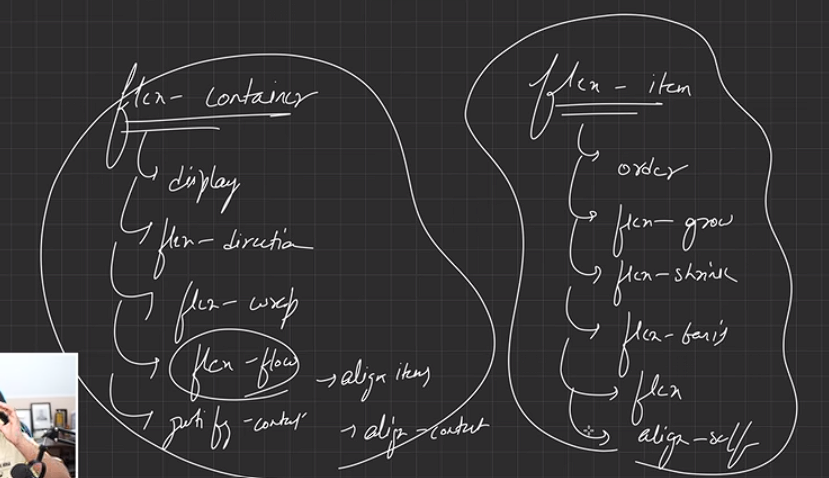 flex - container
display
flex - direction
flex - wrap
flex - flow
justify - content
align items
align - content
flex - item
order
flex - grow
flex - shrink
flex - basis
flex
align - self